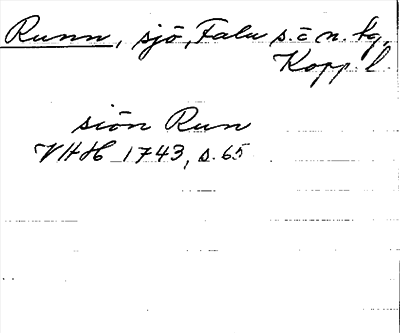 Runn, sjö, Falu s. o. n. tg,
Kopp. l.
siön Run
VHH 1743, s. 65